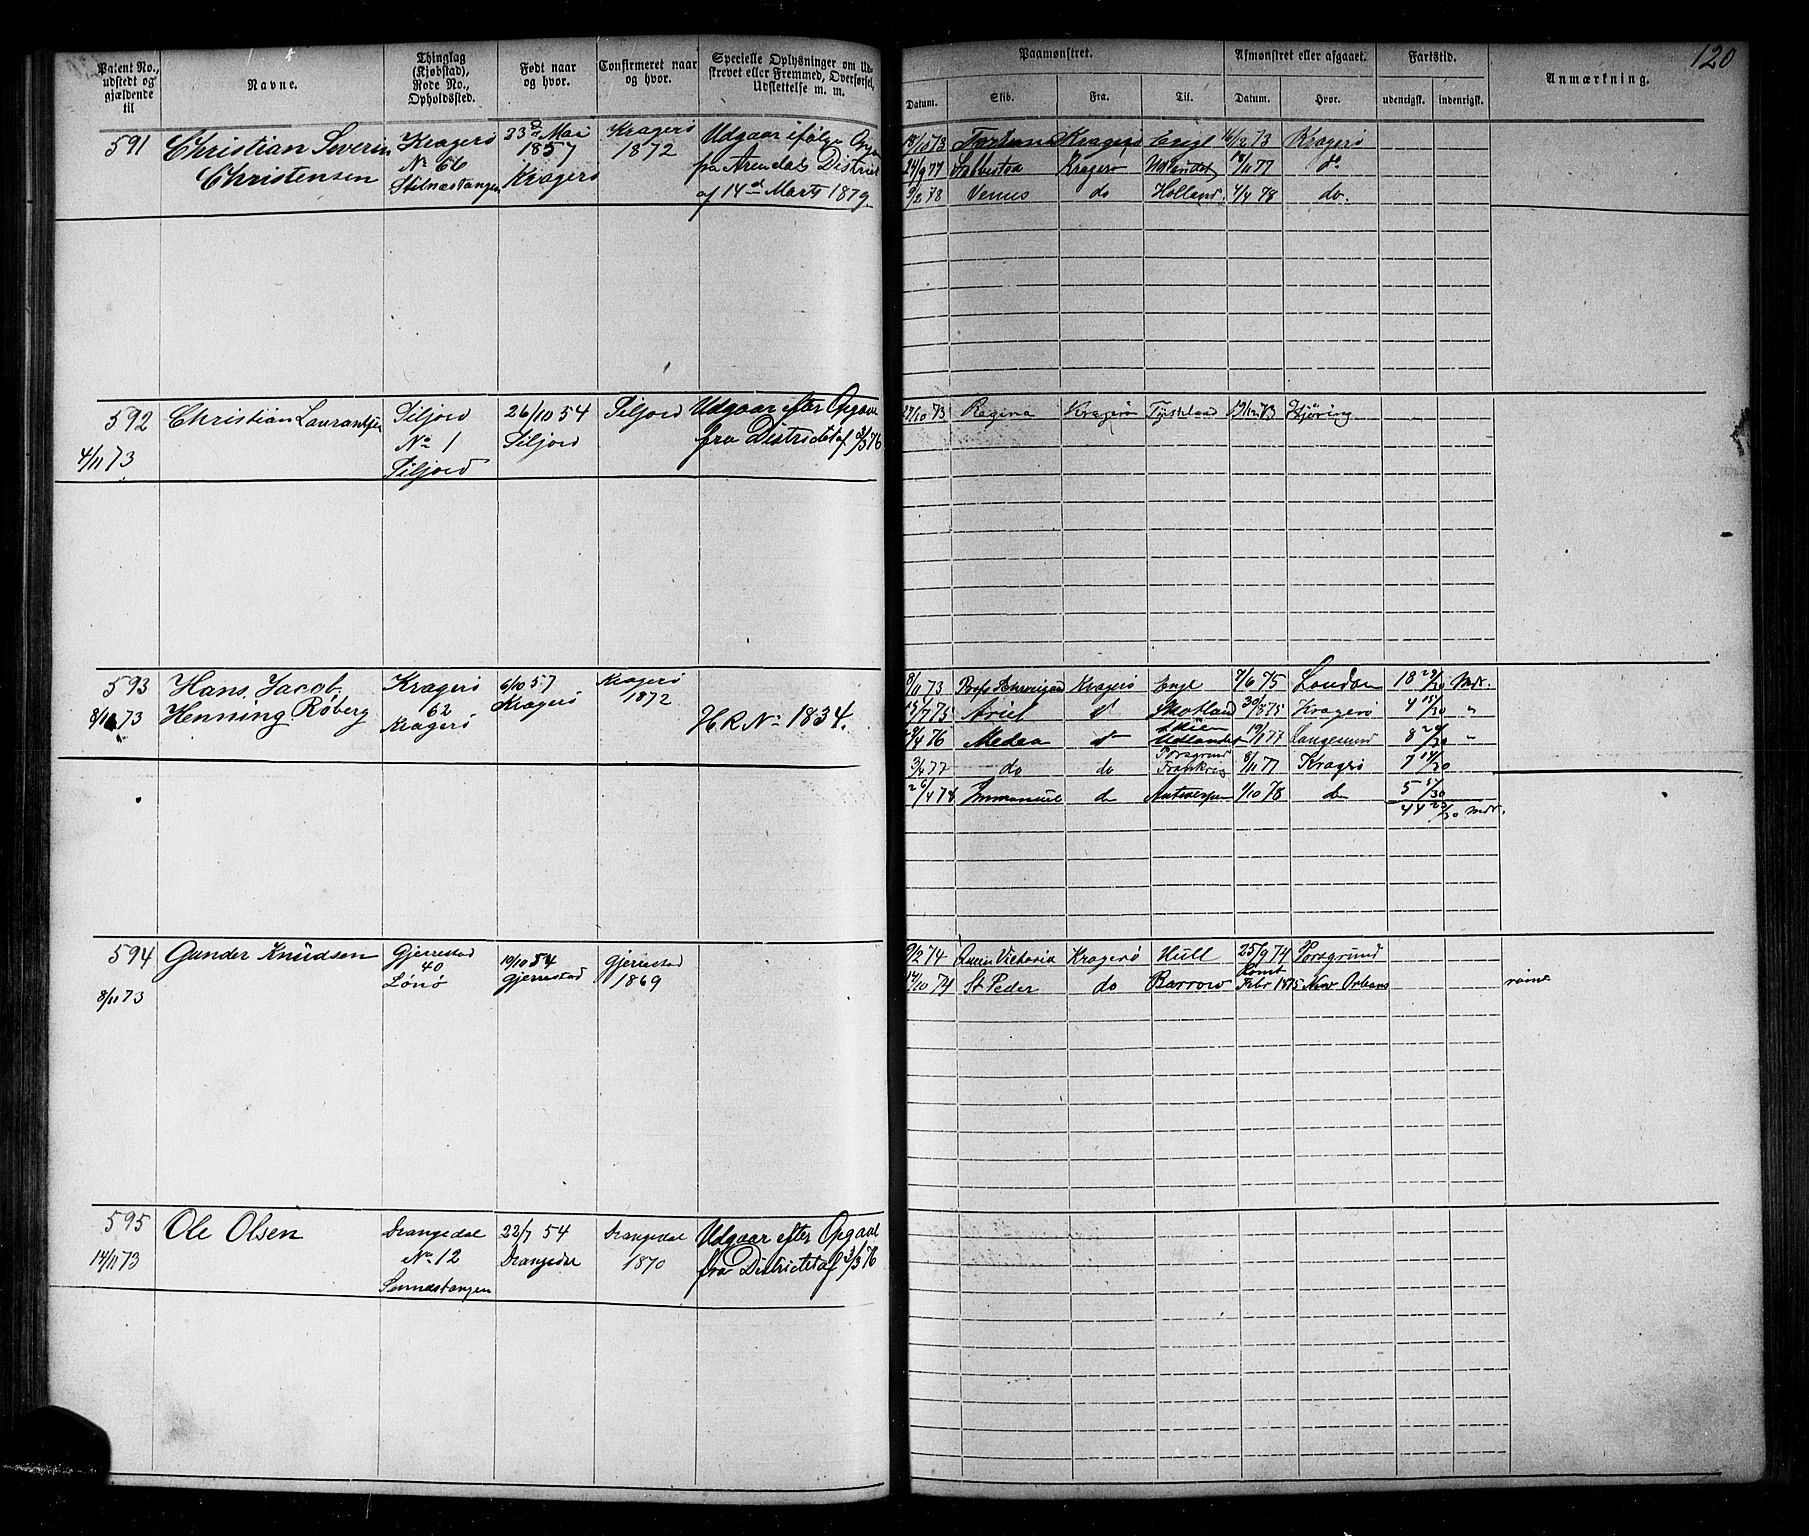 120
Patent No., udstedt og gjældende til
Navne.
Thinglag (Kjøbstad), Rode No., Opholdssted.
Født naar og hvor.
Confirmeret naar og hvor.
Specielle Oplysninger om Udskrevet eller Fremmed, Overførsel, Udslettelse m. m.
Paamønstret.
Afmønstret eller afgaaet.
Fartstid.
Anmærkning.
Datum. Skib. Fra. Til. Datum. Hvor. udenrigsk. indenrigsk.
591
Christian Severin
Christensen
Kragerø
No 56
Stilnæstangen
23de Mai
1857
Kragerø
Kragerø
1872
Udgaar ifølge Opg
fra Arendal District
af 14d Marts 1879
18/10 73 Fortuna Kragerø Engl 16/12 73 Kragerø
24/9 77 Kragerø Udlandet 18/11 77 do
9/2 78 Venus do Holland 4/4 78 do.
592
4/11 73
Christian Laurantsen
Siljord
No 1
Siljord
26/10 54
Siljord
Siljord
Udgaar efter Opgave
fra District af 3/3 76
27/10 73 Regina Kragerø Tyskland 19/12 73 Hjøring
593
8/11 73
Hans Jacob
Henning Røberg
Kragerø
62
Kragerø
6/10 57
Kragerø
Kragerø
1872
H.R.No 1834.
8/11 73 Kragerø Engl 7/6 75 London 18 29/30 Mdr.
15/7 75 Ariel do Skotland 30/11 75 Kragerø 4 15/30 "
Medea do Udlandet 19/1 77 Langesund 8 "
3/4 77 do do Porsgrund Frankrig 8/11 77 Kragerø 7
26/4 78 Immanuel do Antwerpen 1/10 78 do 5
44 Mdr.
594
8/11 73
Gunder Knudsen
Gjerrestad
40
Lønø
19/10 54
Gjerrestad
Gjerrestad
1869
9/2 74 Queen Victoria Kragerø Hull 25/9 74 Porsgrund
14/10 74 St Peder do Barrow Romt Febr 1875 New Orleans rømt
595
14/11 73
Ole Olsen
Drangedal
No 12
Sannæstangen
22/7 54
Drangedal
Drangedal
1870
Udgaar efter Opgave
fra District af 3/3 76